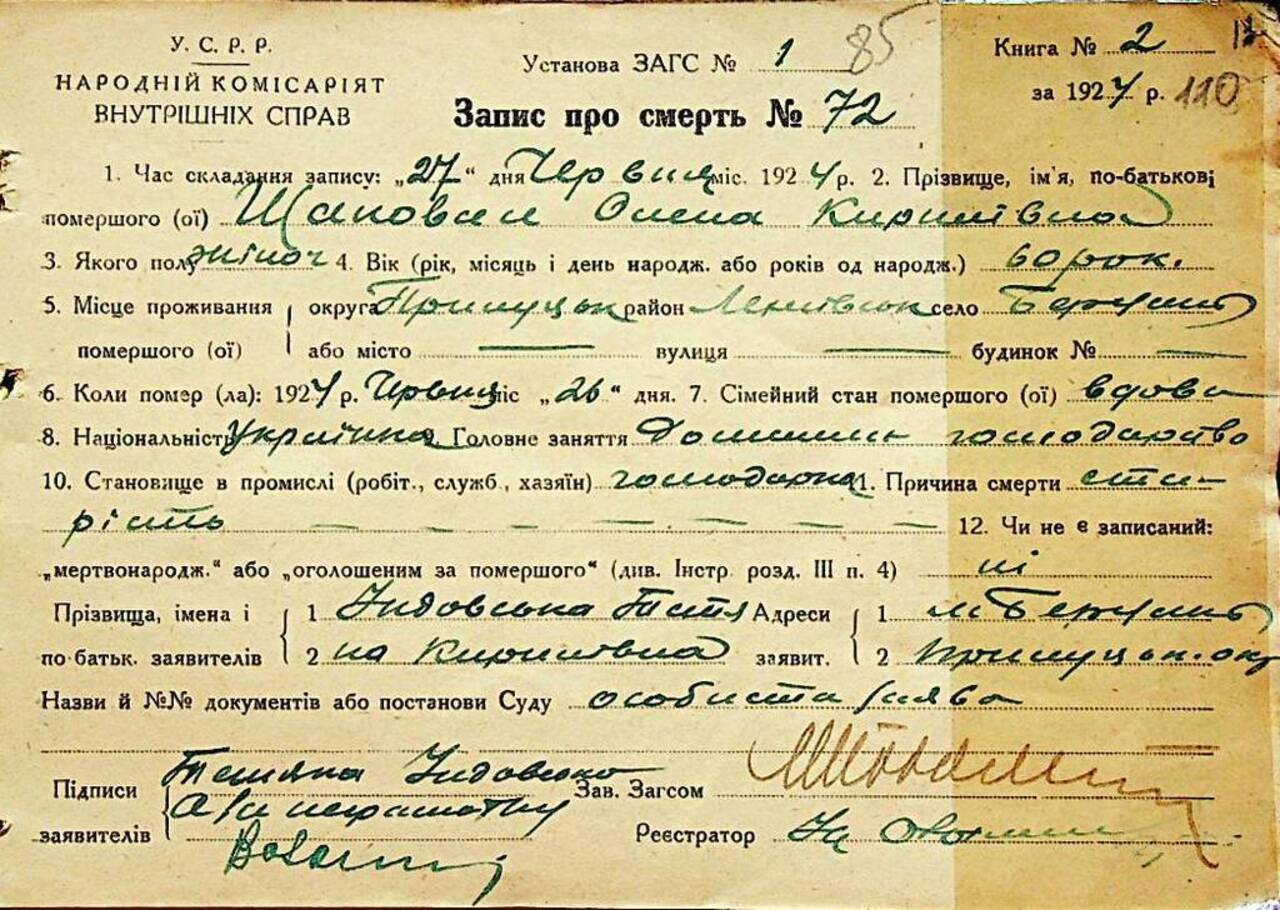 У. С. Р. Р.
НАРОДНІЙ КОМІСАРІЯТ
ВНУТРІШНІХ СПРАВ
Установа ЗАГС № 1 85
Книга № 2
за 1924 р. 110
Запис про смерть № 72
1. Час складання запису: „27“ дня Червня міс. 1924 р. 2. Прізвище, ім'я, по-батькові
помершого (ої) Шаповал Олена Кирилівна
3. Якого полу жіноч 4. Вік (рік, місяць і день народж. або років од народж.) 60 рок.
5. Місце проживання помершого (ої) округа Прилуцьк район Ленінськ село
або місто — вулиця — будинок № —
6. Коли помер (ла): 1924 р. Червня міс „26“ дня. 7. Сімейний стан помершого (ої) вдова
8. Національність Українка 9. Головне заняття Домашнє господарство
10. Становище в промислі (робіт., служб., хазяїн) господарка 11. Причина смерти ста-
рість — — — — — — — 12. Чи не є записаний:
„мертвонародж.“ або „оголошеним за помершого“ (див. Інстр. розд. III п. 4) ні
Прізвища, імена і по батьк. заявителів 1 Тетя Адреси заявит. 1 м
2 на Кирилівна 2 Прилуцьк. окр
Назви й №№ документів або постанови Суду особиста заява
Підписи заявителів Тетяна
Зав. Загсом
а за неграмотну
Реєстратор